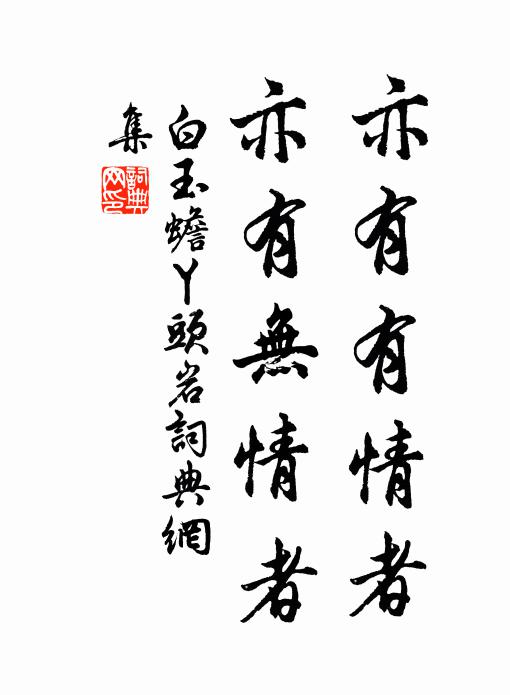 亦有有情者
亦有無情者
白玉蟾丫頭岩詞典網
集
詞典
网印